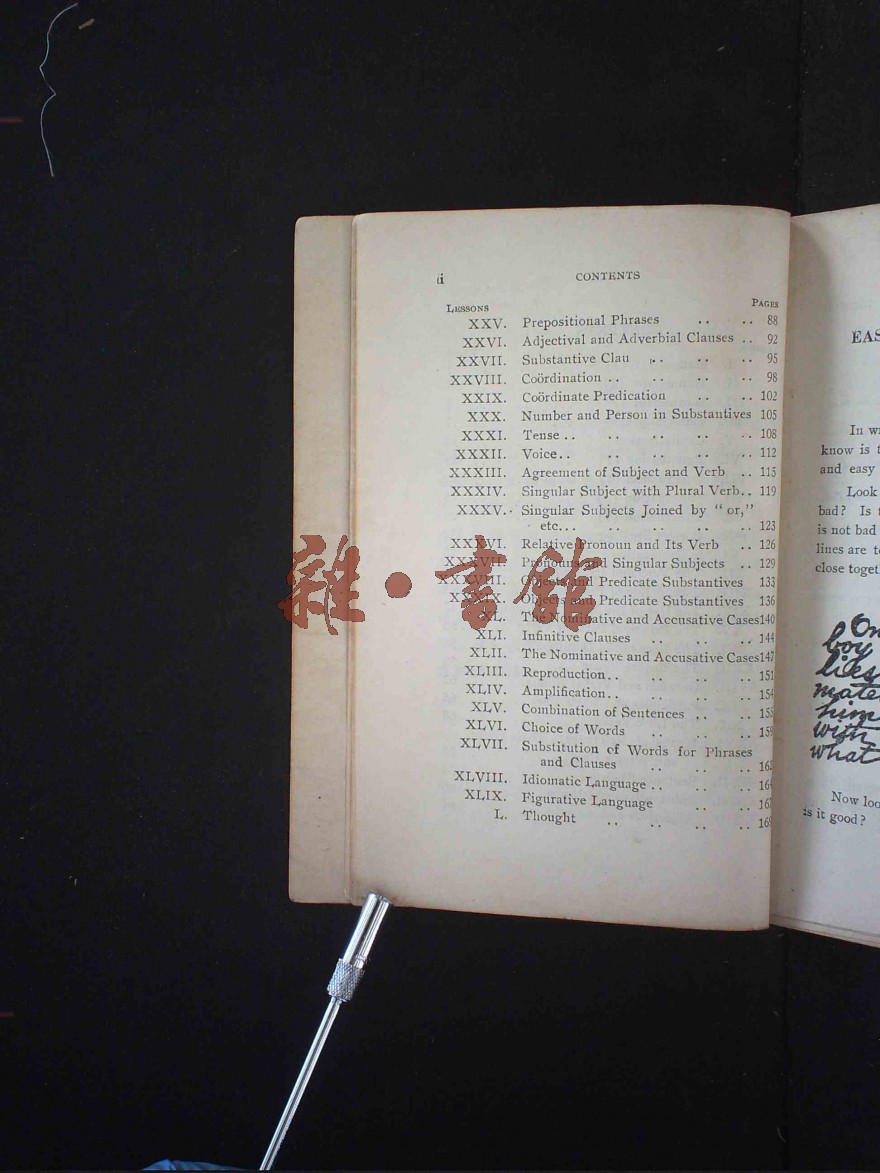 ii CONTENTS
LESSONS PAGES
XXV. Prepositional Phrases .. .. 88
XXVI. Adjectival and Adverbial Clauses .. 92
XXVII. Substantive Clau .. .. .. 95
XXVIII. Coördination .. .. .. .. 98
XXIX. Coördinate Predication .. .. 102
XXX. Number and Person in Substantives 105
XXXI. Tense .. .. .. .. .. 108
XXXII. Voice .. .. .. .. .. 112
XXXIII. Agreement of Subject and Verb .. 115
XXXIV. Singular Subject with Plural Verb .. 119
XXXV. Singular Subjects Joined by "or,"
etc... .. .. .. .. 123
XXXVI. Relative Pronoun and Its Verb .. 126
XXXVII. Pronouns and Singular Subjects .. 129
XXXVIII. Objects and Predicate Substantives 133
XXXIX. Objects and Predicate Substantives 136
XL. The Nominative and Accusative Cases 140
XLI. Infinitive Clauses .. .. .. 144
XLII. The Nominative and Accusative Cases 147
XLIII. Reproduction .. .. .. .. 151
XLIV. Amplification .. .. .. .. 154
XLV. Combination of Sentences .. .. 155
XLVI. Choice of Words .. .. .. 159
XLVII. Substitution of Words for Phrases
and Clauses .. .. ..
XLVIII. Idiomatic Language .. .. ..
XLIX. Figurative Language .. ..
L. Thought .. .. .. ..
雜·書館
EAS
In w
know is t
and easy
Look
bad? Is
is not bad
lines are t
close toget
On
boy
likes
mate
him
with
what
Now loo
is it good?